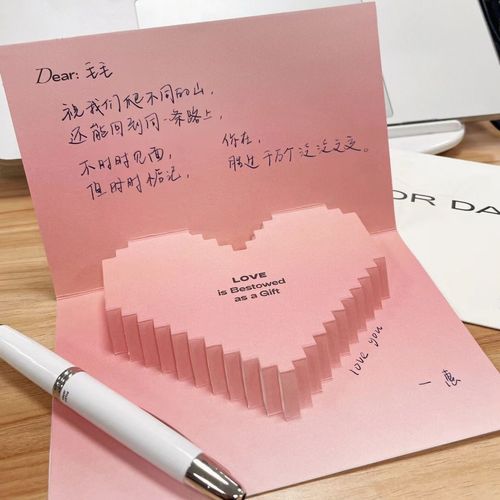 Dear: 毛毛
祝我们爬不同的山，
还能回到同一条路上，
不时时见面，
但时时惦记，
你在，
胜过千万个泛泛之交。
LOVE
is Bestowed
as a Gift
love you
OR DA